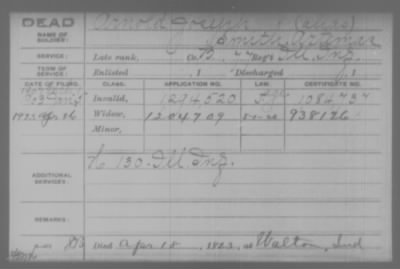 DEAD
NAME OF SOLDIER:
Arnold Joseph (alias)
Smith,
SERVICE:
Late rank, Co. B, Reg't Ill. Inf.
TERM OF SERVICE:
Enlisted , 1 Discharged , 1
DATE OF FILING. CLASS. APPLICATION NO. LAW. CERTIFICATE NO.
Invalid, 1294520 1084737
1923 Apr 26 Widow, 1204709 938126
Minor,
ADDITIONAL SERVICES:
130 Ill. Inf.
REMARKS:
Died Apr 18, 1923, at Walton, Ind